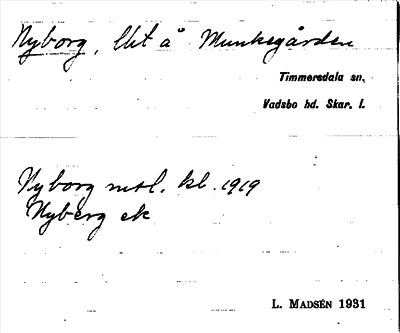 Nyborg, lht å Munkegården
Timmersdala sn,
Vadsbo hd. Skar. l.
Nyborg msl. kb. 1919
Nyberg ek
L. MADSÉN 1931